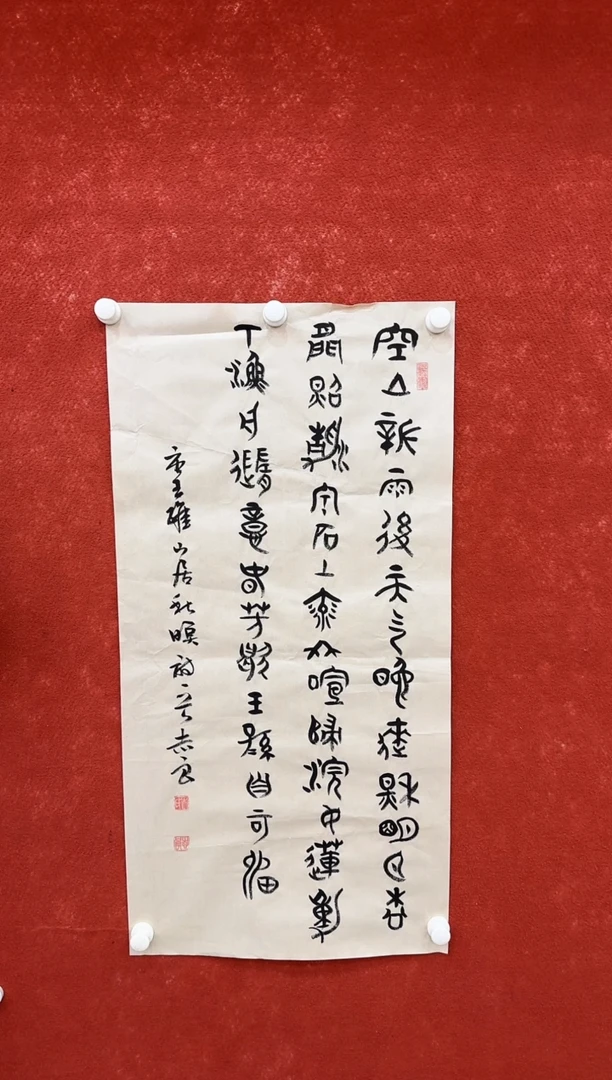 空山新雨後天气晚來秋明月松
間照清泉石上流竹喧歸浣女蓮動
下漁舟隨意春芳歇王孫自可留
唐王維山居秋暝詩一首志良